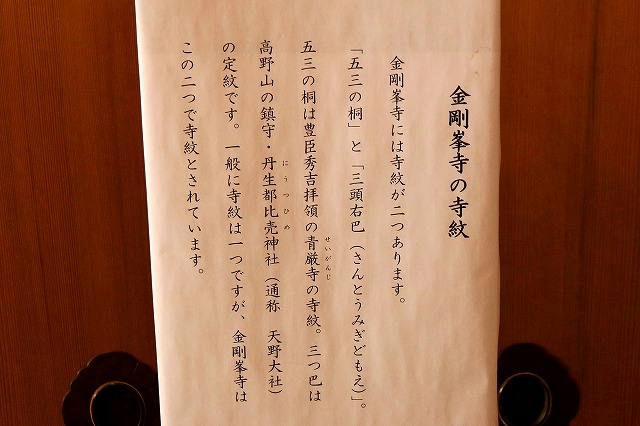 金剛峯寺の寺紋
金剛峯寺には寺紋が二つあります。
「五三の桐」と「三頭右巴（さんとうみぎどもえ）」。
五三の桐は豊臣秀吉拝領の青厳寺の寺紋。三つ巴は
せいがんじ
高野山の鎮守・丹生都比売神社（通称　天野大社）
にうつひめ
の定紋です。一般に寺紋は一つですが、金剛峯寺は
この二つで寺紋とされています。